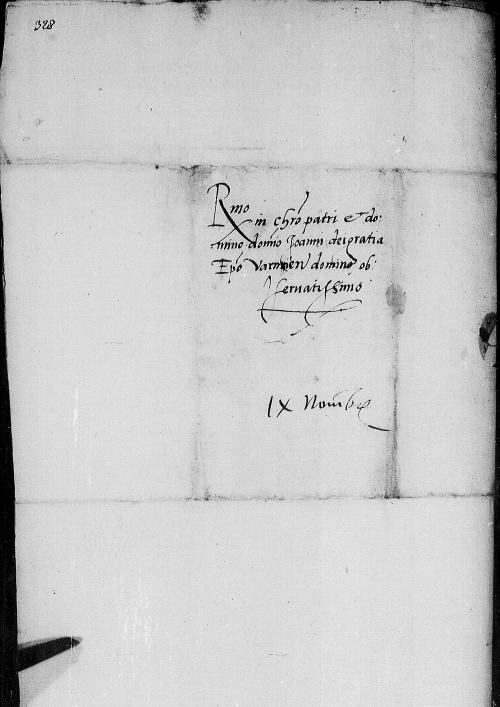 328
Rmo
in chro patri et do:
mino domio Joanni dei gratia
Epo Varmien domino ob:
servatissimo
IX Novembr